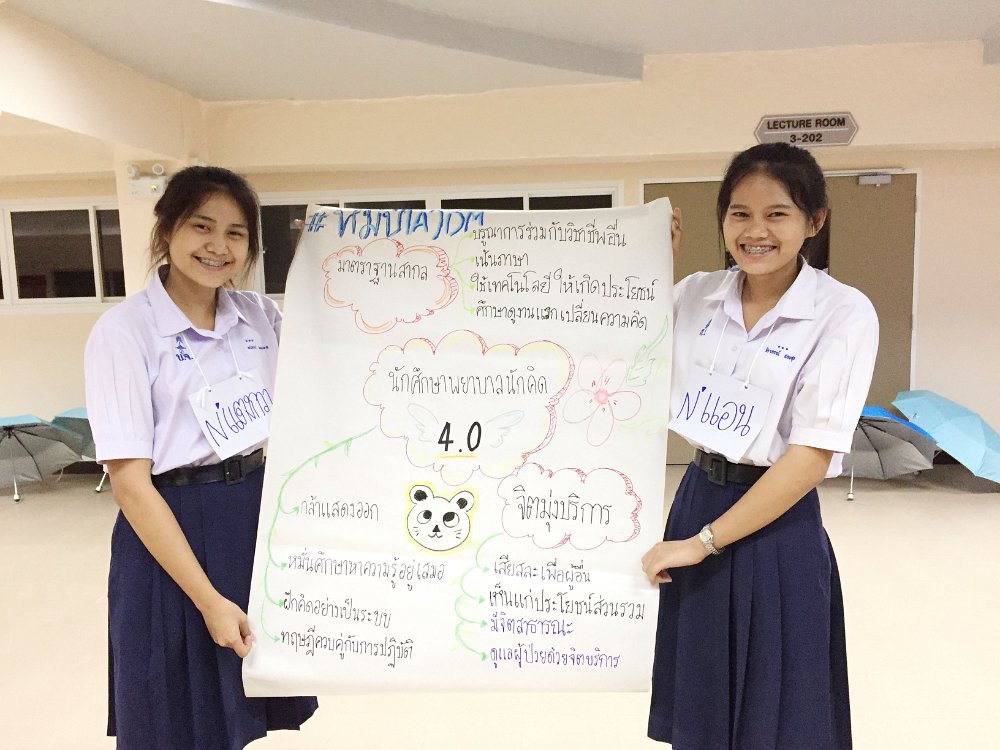 LECTURE ROOM
3-202
มาตราฐานสากล
บรูณาการร่วมกับวิชาชีพอื่น
เน้นภาษา
ใช้เทคโนโลยี ให้เกิดประโยชน์
ศึกษาดูงานแลกเปลี่ยนความคิด
นักศึกษาพยาบาลนักคิด
4.0
กล้าแสดงออก
หมั่นศึกษาหาความรู้อยู่เสมอ
ฝึกคิดอย่างเป็นระบบ
ทฤษฎีควบคู่กับการปฏิบัติ
จิตมุ่งบริการ
เสียสละเพื่อผู้อื่น
เห็นแก่ประโยชน์ส่วนรวม
มีจิตสาธารณะ
ดูแลผู้ป่วยด้วยจิตบริการ
N'แอน